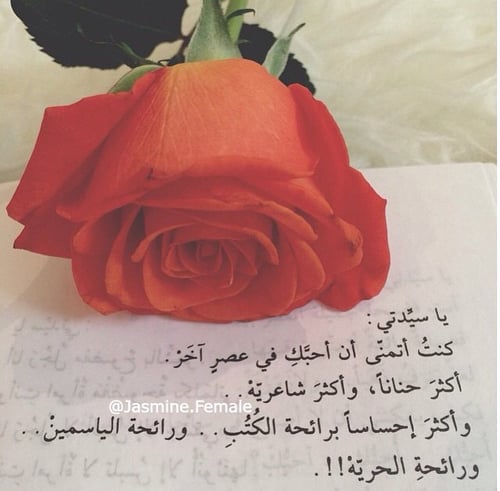 يا سيِّدتي:
كنتُ أتمنّى أن أحبَّكِ في عصرٍ آخَرْ.
أكثرَ حناناً، وأكثرَ شاعريّةْ..
@Jasmine.Female
وأكثرَ إحساساً برائحة الكُتُبِ.. ورائحة الياسمينْ..
ورائحةِ الحريّةْ!!.